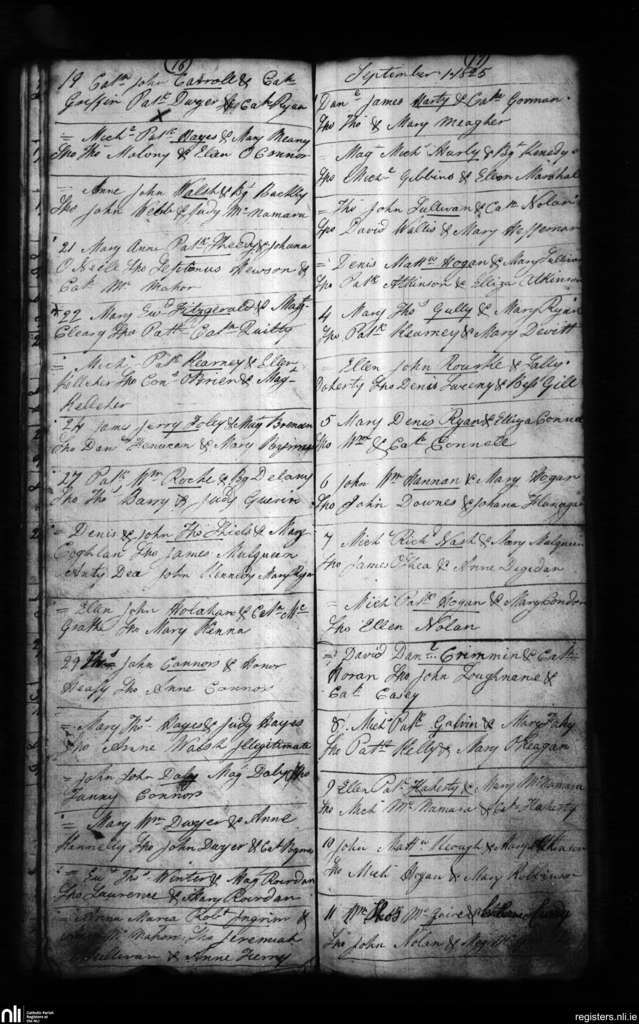 (16)
19 Cath John Carroll & Cath
Griffin Patk Dwyer & Cath Ryan
= Michl Patk Hayes & Mary Meany
Spo Thos Molony & Ellen O'Connor
= Anne John Walsh & Bgt Buckley
Spo John Webb & Judy McNamara
21 Mary Anne Patk Sheedy & Johana
Spo Newson &
Cath McMahon
22 Mary Ewd Fitzgerald & Magt
Cleary Spo Patk Cath
= Michl Patk Kearney & Ellen
Kelleher Spo Cons O'Brien & Magt
Kelleher
24 James Jerry Foley & Magt Brennan
Spo Danl & Mary Byrnes
27 Patk Wm Roche & Bgt Delany
Spo Thos Barry & Judy Guerin
= Denis & John Thos Shiels & Mary
Coghlan Spo James Mulqueen
Dea John Kennedy Mary Ryan
= Ellen John Holahan & Cathn Mc
Grath Spo Mary Kenna
29 Thos John Connors & Honor
Heafy Spo Anne Connors
= Mary Thos Hayes & Judy Hayes
Spo Anne Walsh Illegitimate
= John John Daly Magt Daly Spo
Fanny Connors
= Mary Wm Dwyer & Anne
Kennelly Spo John Dwyer & Cath
= Ewd Thos Winter & Magt Riordan
Spo Laurence & Mary Riordan
= Anna Maria Robt Ingrim &
McMahon Spo Jeremiah
Sullivan & Anne
(17)
September 1st 1825
Danl James Harty & Cath Gorman
Spo Thos & Mary Meagher
= Magt Michl Hurly & Bgt Kenedy
Spo Michl Gibbins & Ellen Marshal
= Thos John Sullivan & Cath Nolan
Spo David Wallis & Mary Heffernan
= Denis Mattw Hogan & Mary Sullivan
Spo Patk Atkinson & Eliza Atkinson
4 Mary Thos Gully & Mary Ryan
Spo Patk Kearney & Mary Devitt
Ellen John Rourke & Sally
Doherty Spo Denis Sweeny & Bess Gill
5 Mary Denis Ryan & Elliza Connell
Spo Wm & Cath Connell
6 John Wm Hannan & Mary Hogan
Spo John Downes & Johana Flanagan
7 Mich Richd Nash & Mary Mulqueen
Spo James Shea & Anne Degidan
= Mich Patk Hogan & Mary Condon
Spo Ellen Nolan
= David Danl Crimmin & Cath
Horan Spo John Loughnane &
Cath Casey
8 Mich Patk Galvin & Mary Fahy
Spo Patk Kelly & Mary O'Reagan
9 Ellen Patk Flaherty & Mary McNamara
Spo Mich McNamara & Cath Flaherty
10 John Mattw Keough & Mary Atkinson
Spo Mich Hogan & Mary Robinson
11 Wm Thos McGuire &
Spo John Nolan & Magt
nli
Catholic Parish
Registers at
the NLI
registers.nli.ie